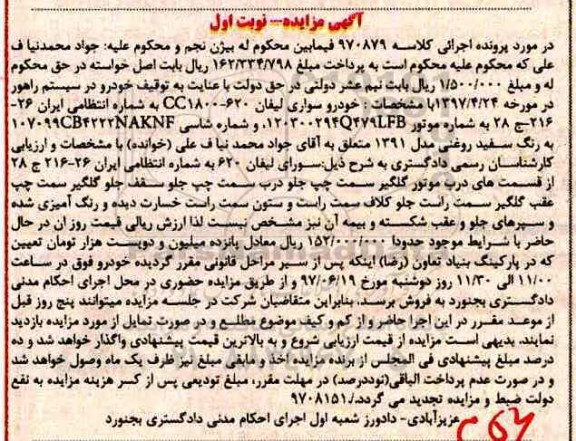 آگهی مزایده- نوبت اول
در مورد پرونده اجرائی کلاسه ۹۷۰۸۷۹ فیمابین محکوم له بیژن نجم و محکوم علیه: جواد محمدنیا ف
علی که محکوم علیه محکوم است به پرداخت مبلغ ۱۶۲/۳۳۴/۷۹۸ ریال بابت اصل خواسته در حق محکوم
له و مبلغ ۱/۵۰۰/۰۰۰ ریال بابت نیم عشر دولتی در حق دولت با عنایت به توقیف خودرو در سیستم راهور
در مورخه ۱۳۹۷/۴/۲۴ با مشخصات : خودرو سواری لیفان ۶۲۰-CC۱۸۰۰ به شماره انتظامی ایران ۲۶-
۲۱۶-ج ۲۸ به شماره موتور ۱۲۰۳۰۰۲۹۴Q۴۷۹LFB، و شماره شاسی ۱۰۷۰۹۹CB۴۲۲۲NAKNF
به رنگ سفید روغنی مدل ۱۳۹۱ متعلق به آقای جواد محمد نیا ف علی (خوانده) با مشخصات و ارزیابی
کارشناسان رسمی دادگستری به شرح ذیل:سورای لیفان ۶۲۰ به شماره انتظامی ایران ۲۶-۲۱۶ ج ۲۸
از قسمت های درب موتور گلگیر سمت چپ جلو درب سمت چپ جلو سقف جلو گلگیر سمت چپ
عقب گلگیر سمت راست جلو کلاف سمت راست و ستون سمت راست خسارت دیده و رنگ آمیزی شده
و سپرهای جلو و عقب شکسته و بیمه آن نیز مشخص نیست لذا ارزش ریالی قیمت روز ان در حال
حاضر با شرایط موجود حدودا ۱۵۲/۰۰۰/۰۰۰ ریال معادل پانزده میلیون و دویست هزار تومان تعیین
که در پارکینگ بنیاد تعاون (رضا) اینکه پس از سیر مراحل قانونی مقرر گردیده خودرو فوق در ساعت
۱۱/۰۰ الی ۱۱/۳۰ روز دوشنبه مورخ ۹۷/۰۶/۱۹ و از طریق مزایده حضوری در محل اجرای احکام مدنی
دادگستری بجنورد به فروش برسد. بنابراین متقاضیان شرکت در جلسه مزایده میتوانند پنج روز قبل
از موعد مقرر در این اجرا حاضر و از کم و کیف موضوع مطلع و در صورت تمایل از مورد مزایده بازدید
نمایند. بدیهی است مزایده از قیمت ارزیابی شروع و به بالاترین قیمت پیشنهادی واگذار خواهد شد و ده
درصد مبلغ پیشنهادی فی المجلس از برنده مزایده اخذ و مابقی مبلغ نیز ظرف یک ماه وصول خواهد شد
و در صورت عدم پرداخت الباقی(نوددرصد) در مهلت مقرر، مبلغ تودیعی پس از کسر هزینه مزایده به نفع
دولت ضبط و مزایده تجدید می گردد./۹۷۰۸۱۵۱
عزیزآبادی- دادورز شعبه اول اجرای احکام مدنی دادگستری بجنورد